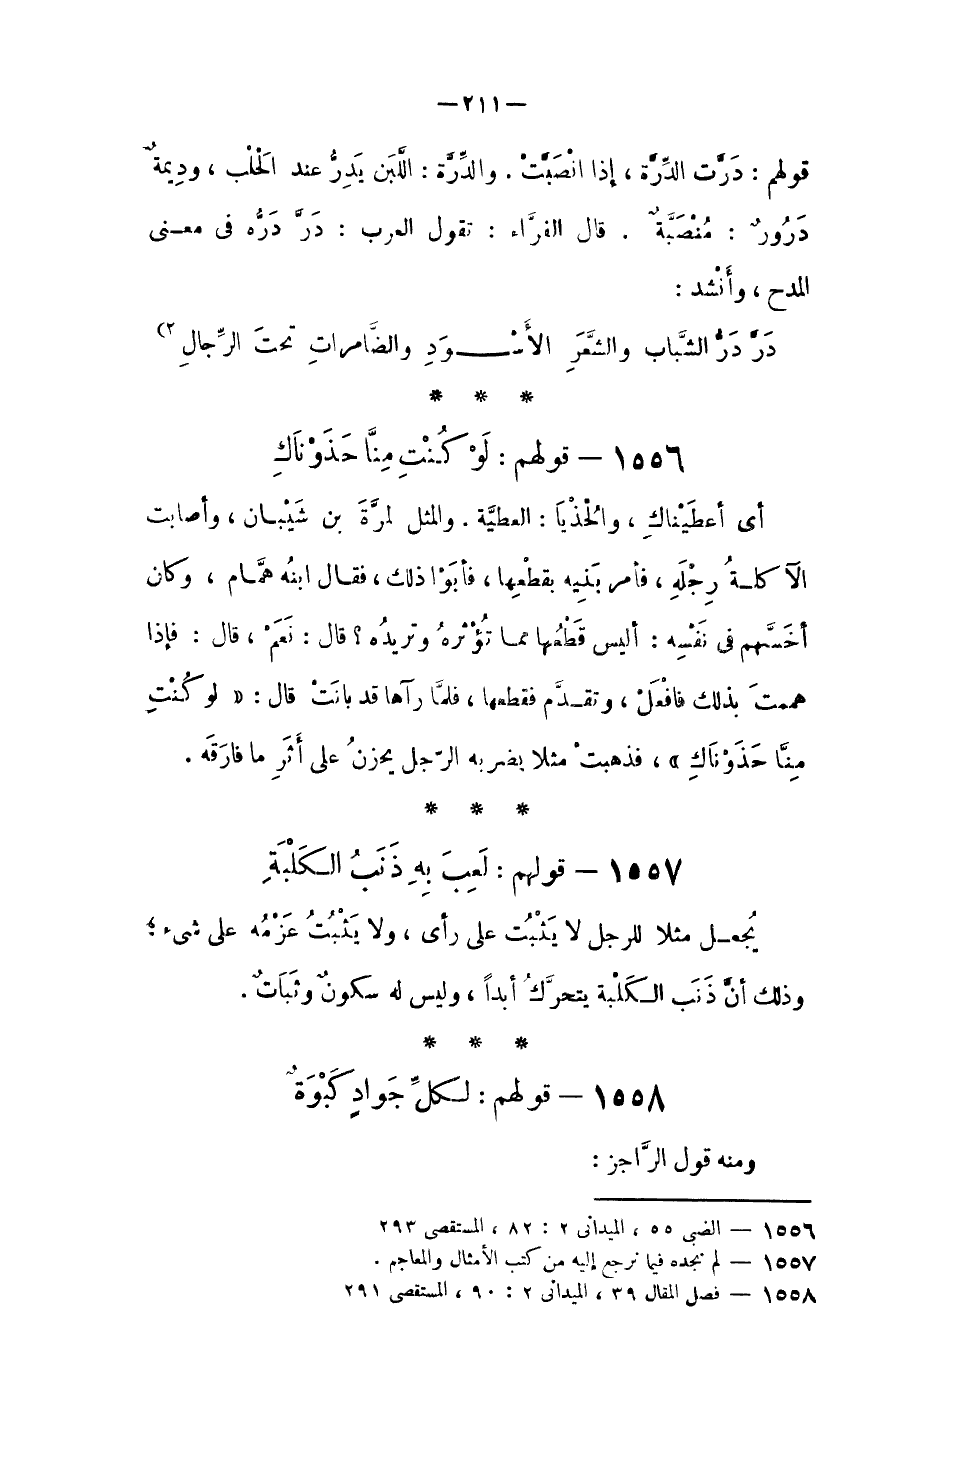 —٢١١—
قولهم : دَرَّت الدِّرَّة ، إذا انْصَبَّتْ . والدِّرَّة : اللَّبَن يَدِرُّ عند الَحْلْب ، ودِيمةٌ
دَرُورٌ : مُنْصَبَّةٌ . قال الفرَّاء : تقول العرب : دَرَّ دَرُّه فى معنى
المدح ، وأَنْشد :
دَرَّ دَرُّ الشَّباب والشَّعَرِ الأَسْـــوَدِ والضَّامراتِ تحتَ الرِّجالِ (٢)
* * *
١٥٥٦ — قولهم : لَوْ كُنْتِ مِنَّا حَذَوْنَاكِ
أى أعطَيْناكِ ، والُحْذْيَا : العطيَّة . والمثل لمرَّةَ بن شَيْبان ، وأصابت
الآكلةُ رِجْلَهِ ، فأمر بَنِيه بقطْعِها ، فأبَوْا ذلك ، فقال ابنُه همَّام ، وكان
أخَسَّهم فى نَفْسِه : أليس قَطْعُها مما تُؤْثرهُ وتريدُه ؟ قال : نَعَمْ ، قال : فإذا
هممتَ بذلك فافْعَلْ ، وتقدَّم فقطعها ، فلمَّا رآها قد بانَتْ قال : « لو كُنْتِ
مِنَّا حَذَوْنَاكِ » ، فذهبتْ مثلا يضربه الرّجل يحزنُ على أَثَرِ ما فارَقَه .
* * *
١٥٥٧ — قولهم : لَعِبَ بِهِ ذَنَبُ الكَلْبَةِ
يُجعل مثلا للرجل لا يَثْبُت على رأى ، ولا يَثْبُتُ عَزْمُه على شىء ؛
وذلك أنَّ ذَنَب الكَلْبة يتحرَّكُ أبداً ، وليس له سكونٌ وثَبَاتٌ .
* * *
١٥٥٨ — قولهم : لكلِّ جَوادٍ كَبْوَةٌ
ومنه قول الرَّاجز :
١٥٥٦ — الضبى ٥٥ ، الميدانى ٢ : ٨٢ ، المستقصى ٢٩٣
١٥٥٧ — لم نجده فيما نرجع إليه من كتب الأمثال والمعاجم .
١٥٥٨ — فصل المقال ٣٩ ، الميدانى ٢ : ٩٠ ، المستقصى ٢٩١